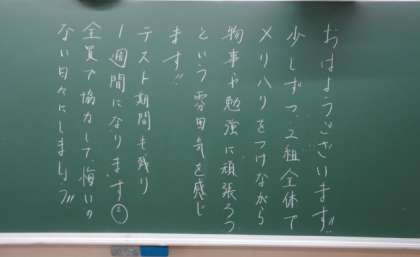 おはようございます!!
少しずつ、2組全体で
メリハリをつけながら
物事や勉強に頑張ろう
という雰囲気を感じ
ます!!
テスト期間も残り
1週間になります。
全員で協力して、悔いの
ない日々にしましょう!!